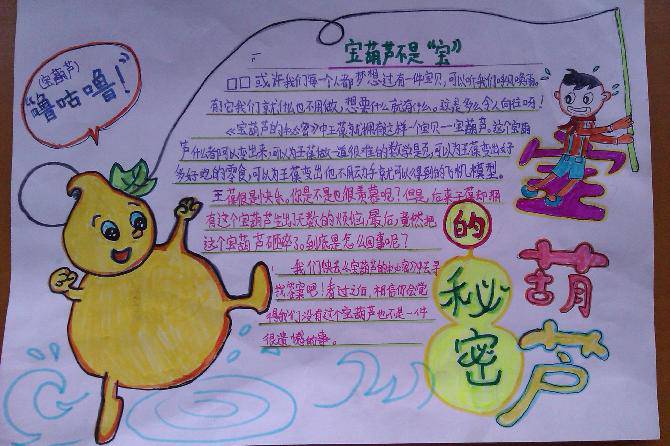 宝葫芦不是“宝”
(宝葫芦)
“噜咕噜！”
口口或许我们每一个人都梦想过有一件宝贝，可以听我们呼风唤雨。
有它我们就什么也不用做，想要什么就有什么。这是多么令人向往呀！
《宝葫芦的秘密》中王葆就拥有这样一个宝贝—宝葫芦。这个宝葫
芦什么都可以变出来，可以为王葆做一道很难的数学题，可以为王葆变出好
多好吃的零食，可以为王葆变出他不用动手就可以得到的飞机模型。
王葆很是快乐。你是不是也很羡慕呢？但是，后来王葆却因
有这个宝葫芦生出了无数的烦恼，最后，竟然把
这个宝葫芦砸碎了。到底是怎么回事呢？
我们快去《宝葫芦的秘密》中去寻
找答案吧！看过之后，相信你会觉
得我们没有这个宝葫芦也不是一件
很遗憾的事。
宝
葫
芦
的
秘
密